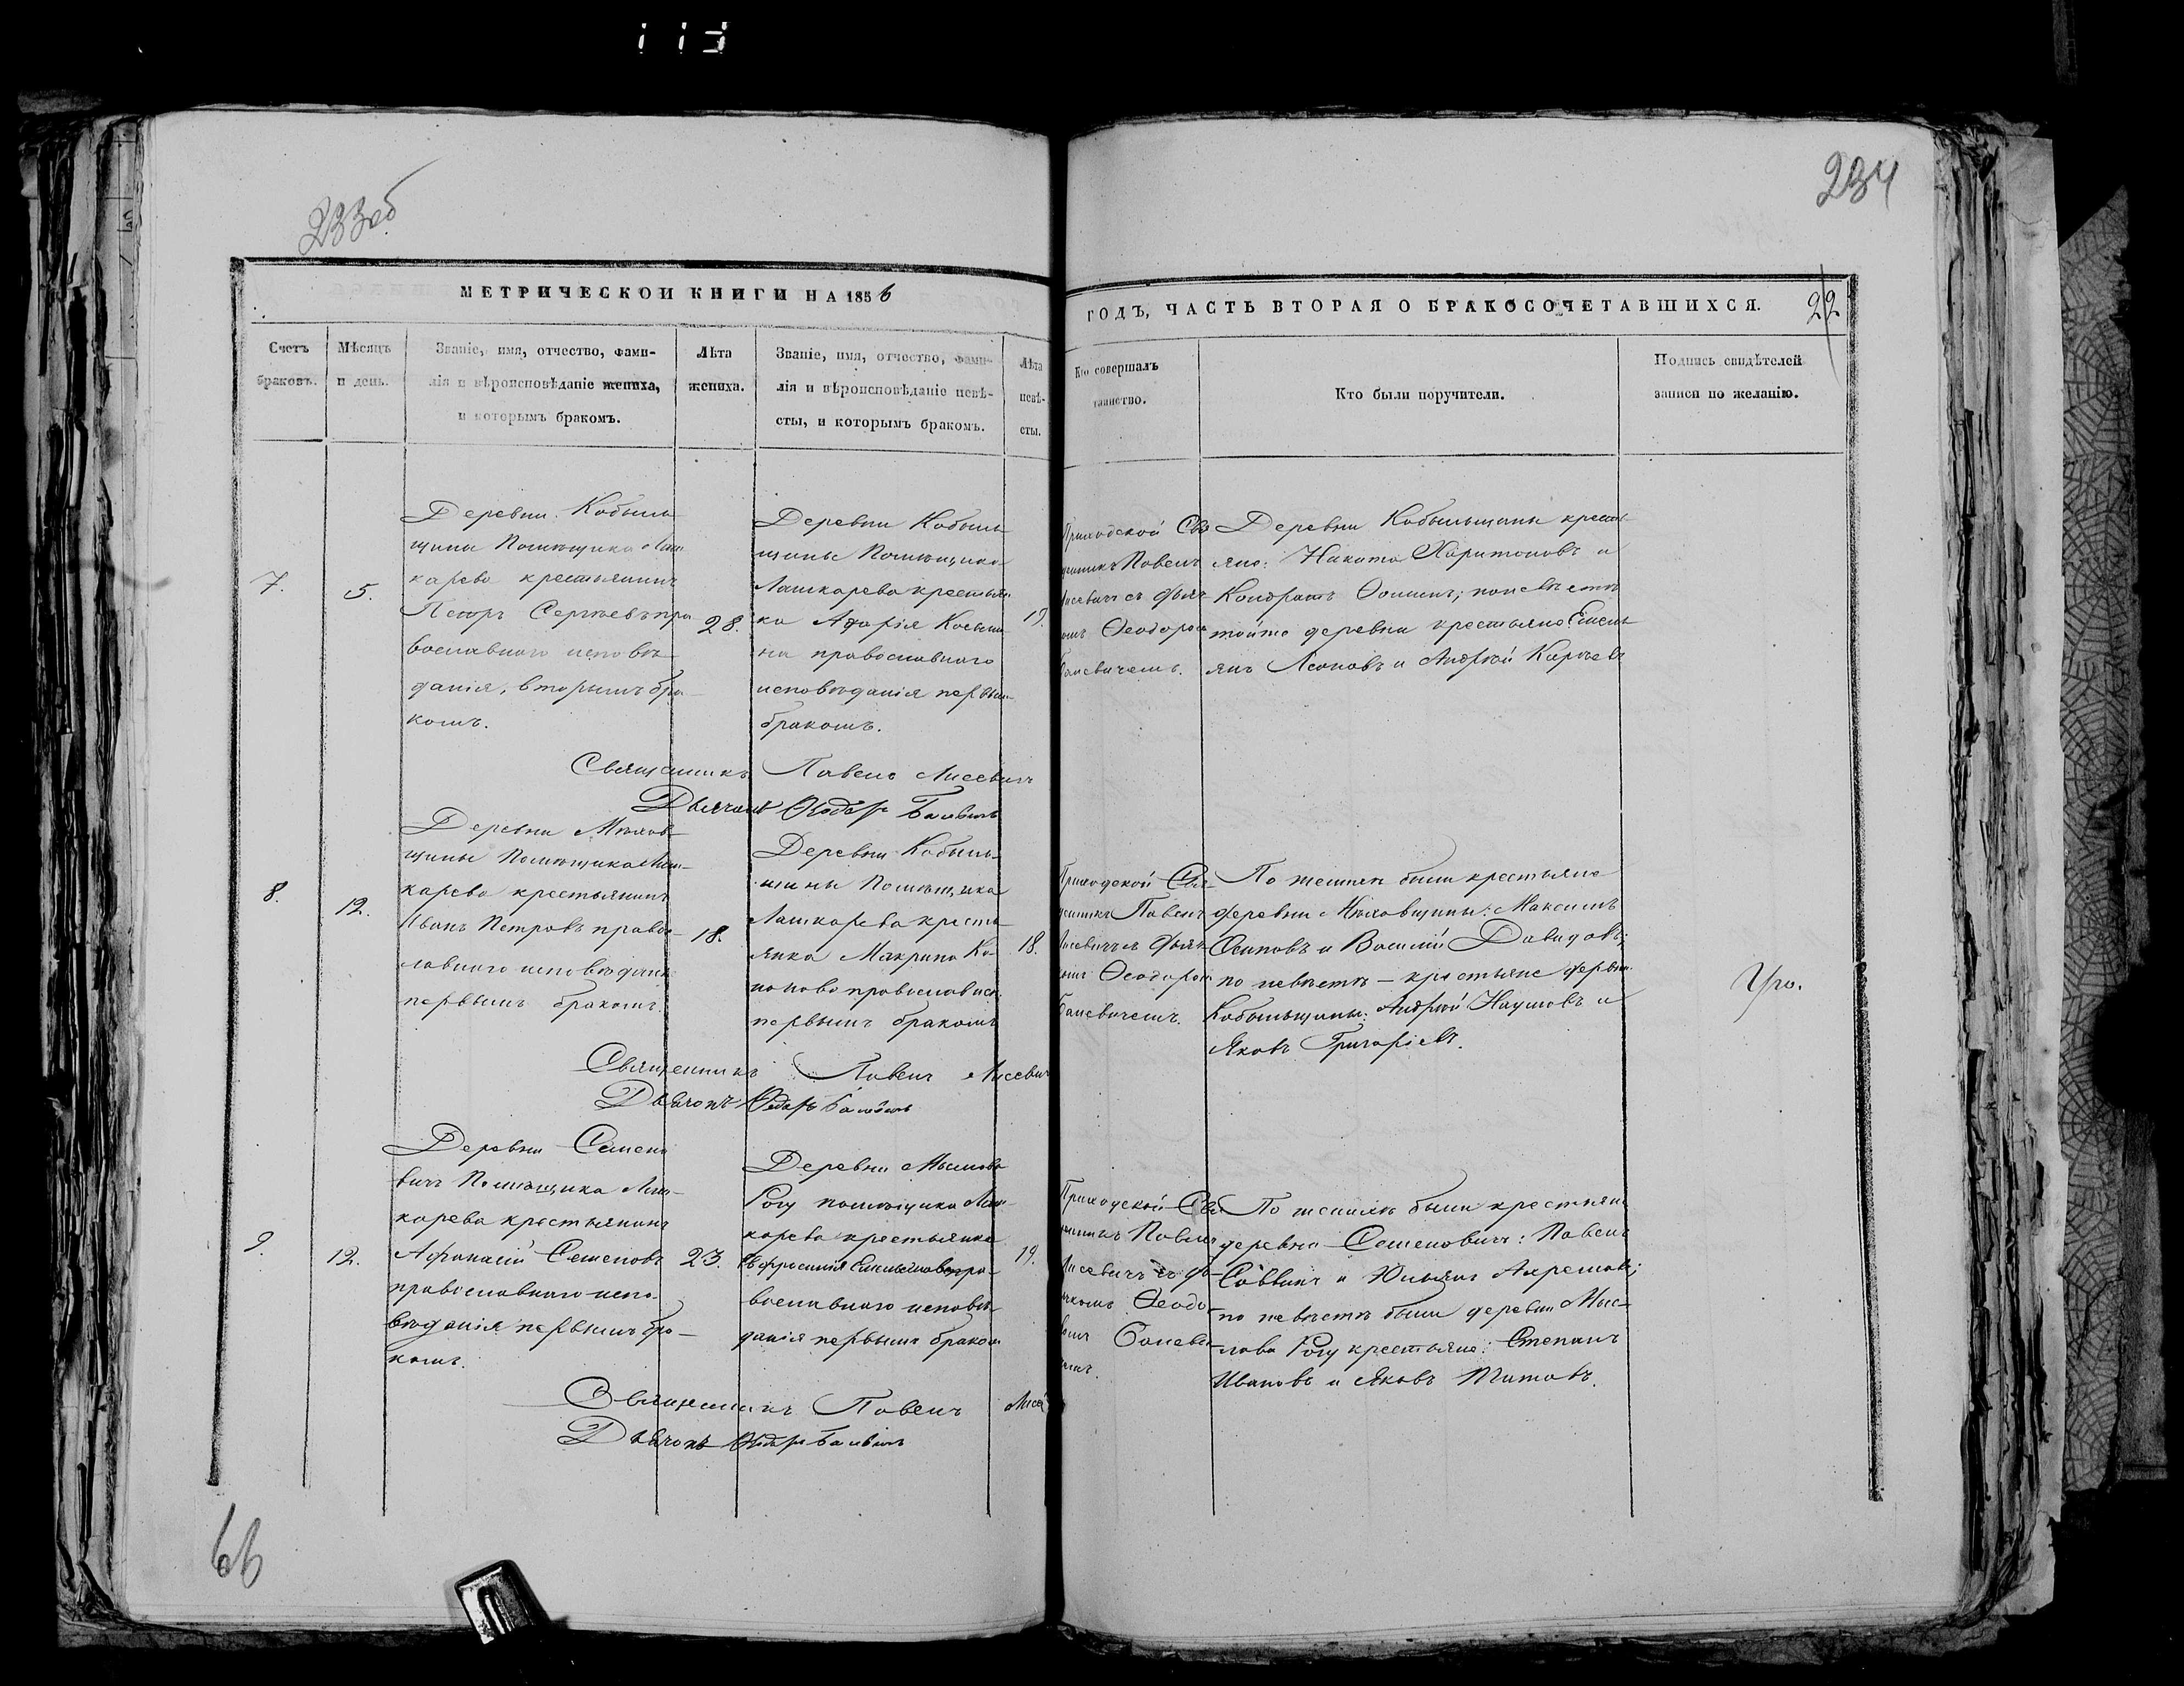 233об
234
МЕТРИЧЕСКОЙ КНИГИ НА 1856
ГОДЪ, ЧАСТЬ ВТОРАЯ О БРАКОСОЧЕТАВШИХСЯ.
22
Счетъ
браковъ.
Мѣсяцъ
и день.
Званіе, имя, отчество, фами-
лія и вѣроисповѣданіе жениха,
и которымъ бракомъ.
Лѣта
жениха.
Званіе, имя, отчество, фами-
лія и вѣроисповѣданіе невѣ-
сты, и которымъ бракомъ.
Лѣта
невѣ-
сты.
Кто совершалъ
таинство.
Кто были поручители.
Подпись свидѣтелей
записи по желанію.
7.
5.
Деревни Кобыль
щины Помѣщика Лаш
карева крестьянинъ
Петръ Сергѣевъ пра
вославнаго исповѣ
данія, вторымъ бра-
комъ.
28.
Деревни Кобыль
щины Помѣщика
Лашкарева крестьян
ка Косьми
на православнаго
исповѣданія первым
бракомъ.
19.
Приходской Свя
щенникъ Павелъ
Лисевичъ съ дьяч
омъ Ѳеодором
Баневичемъ.
Деревни Кобыльщины кресть
яне: Никита Харитоновъ и
Кондратъ Ѳоминъ; по невѣстѣ
тойже деревни крестьяне Емель
янъ Леоновъ и Андрей Карпѣевъ
Священникъ Павелъ Лисевичъ
Дьячокъ Ѳеодоръ Баневичъ
8.
12.
Деревни Мѣхов
щины Помѣщика Лаш-
карева крестьянинъ
Иванъ Петровъ правос-
лавнаго исповѣдани
первымъ бракомъ.
18.
Деревни Кобыль-
щины Помѣщика
Лашкарева кресть
янка Макрина Ко-
нонова православн.
первымъ бракомъ
18.
Приходской Свя-
щенникъ Павелъ
Лисевичъ съ дьяч-
комъ Ѳеодором
Баневичемъ.
По жениху были крестьяне
деревни Мѣховщины: Максимъ
Осиповъ и Василій Давидовъ;
по невѣстѣ – крестьяне дервни
Кобыльщины: Андрей Наумовъ и
Яковъ Григорьевъ.
Священникъ Павелъ Лисевич
Дьячокъ Ѳеодоръ Баневичъ
9.
12.
Деревни Семено
вичъ Помѣщика Лаш-
карева крестьянинъ
Афанасій Семеновъ
православнаго испо-
вѣданія первымъ бра-
комъ.
23.
Деревни Мыслова
Рогу помѣщика Лаш-
карева крестьянка
Евфросинія пра-
вославнаго исповѣ
данія первымъ браком
19.
Приходской Свя
щенникъ Павелъ
Лисевичъ съ дь-
ячкомъ Ѳеодо-
ромъ Баневи-
чемъ.
По жениху были крестьяне
деревни Семеновичъ: Павелъ
Саввинъ и Юльянъ Ахремовъ;
по невѣстѣ были деревни Мыс-
лова Рогу крестьяне: Степанъ
Ивановъ и Яковъ Титовъ.
Священникъ Павелъ Лисе
Дьячокъ Ѳеодоръ Баневичъ
66